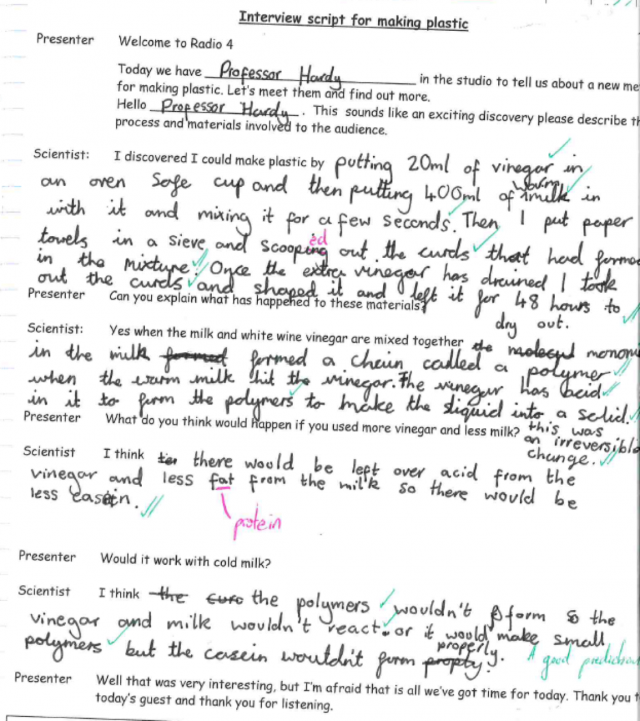 Interview script for making plastic
Presenter Welcome to Radio 4
Today we have Professor Hardy in the studio to tell us about a new me
for making plastic. Let's meet them and find out more.
Hello Professor Hardy. This sounds like an exciting discovery please describe th
process and materials involved to the audience.
Scientist: I discovered I could make plastic by putting 20ml of vinegar in
an oven safe cup and then putting 400ml of warm milk in
with it and mixing it for a few seconds. Then I put paper
towels in a sieve and scooping ed out the curds that had forme
in the mixture. Once the extra vinegar has drained I took
out the curds and shaped it and left it for 48 hours to
dry out.
Presenter Can you explain what has happened to these materials?
Scientist: Yes when the milk and white wine vinegar are mixed together the molecul monome
in the milk formed formed a chain called a polymer
when the warm milk hit the vinegar. The vinegar has acid
in it to form the polymers to make the liquid into a solid.
this was an irreversible change.
Presenter What do you think would happen if you used more vinegar and less milk?
Scientist I think there would be left over acid from the
vinegar and less fat from the milk so there would be
less casein.
protein
Presenter Would it work with cold milk?
Scientist I think the curd the polymers wouldn't form so the
vinegar and milk wouldn't react. or it would make small
polymers but the casein wouldn't form properly.
A good prediction
Presenter Well that was very interesting, but I'm afraid that is all we've got time for today. Thank you t
today's guest and thank you for listening.